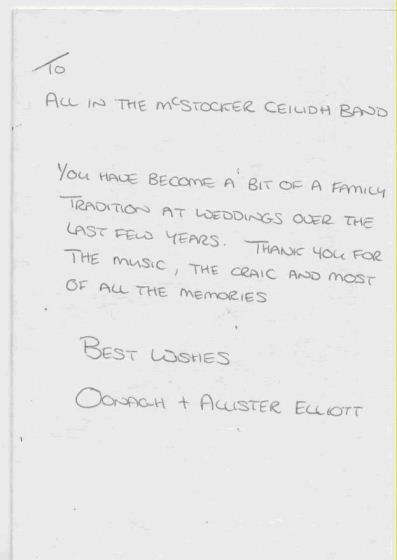 To
ALL IN THE McSTOCKER CEILIDH BAND
YOU HAVE BECOME A BIT OF A FAMILY
TRADITION AT WEDDINGS OVER THE
LAST FEW YEARS. THANK YOU FOR
THE MUSIC, THE CRAIC AND MOST
OF ALL THE MEMORIES
BEST WISHES
OONAGH + ALLISTER ELLIOTT